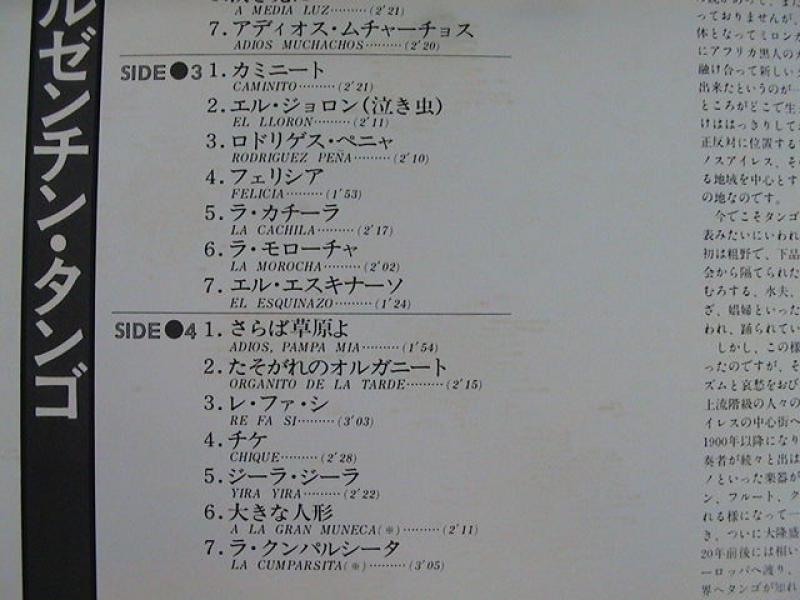 ルゼンチン・タンゴ
A MEDIA LUZ………(2'21)
7. アディオス・ムチャーチョス
ADIOS MUCHACHOS………(2'20)
SIDE●3 1. カミニート
CAMINITO………(2'21)
2. エル・ジョロン(泣き虫)
EL LLORON………(2'11)
3. ロドリゲス・ペニャ
RODRIGUEZ PEÑA………(2'10)
4. フェリシア
FELICIA………(1'53)
5. ラ・カチーラ
LA CACHILA………(2'17)
6. ラ・モローチャ
LA MOROCHA………(2'02)
7. エル・エスキナーソ
EL ESQUINAZO………(1'24)
SIDE●4 1. さらば草原よ
ADIOS, PAMPA MIA………(1'54)
2. たそがれのオルガニート
ORGANITO DE LA TARDE………(2'15)
3. レ・ファ・シ
RE FA SI………(3'03)
4. チケ
CHIQUE………(2'28)
5. ジーラ・ジーラ
YIRA YIRA………(2'22)
6. 大きな人形
A LA GRAN MUNECA(※)………(2'11)
7. ラ・クンパルシータ
LA CUMPARSITA(※)………(3'05)
っておりませんが、
体となってミロンガ
にアフリカ黒人のカ
融け合って新しい
出来たというのが…
ところがどこで生
けははっきりして
正反対に位置する
ノスアイレス、そ
る地域を中心とす
の地なのです。
今でこそタンゴ
表みたいにいわれ
初は粗野で、下品
会から隔てられた
むろする、水夫、
ざ、娼婦といった
われ、踊られてい
しかし、この様
ったのですが、そ
ズムと哀愁をおび
上流階級の人々の
イレスの中心街へ
1900年以降になり
奏者が続々と出は
ノといった楽器が
ン、フルート、ク
れる様になって一
き、ついに大隆盛
20年前後には相い
ーロッパへ渡り、
界へタンゴが知れ